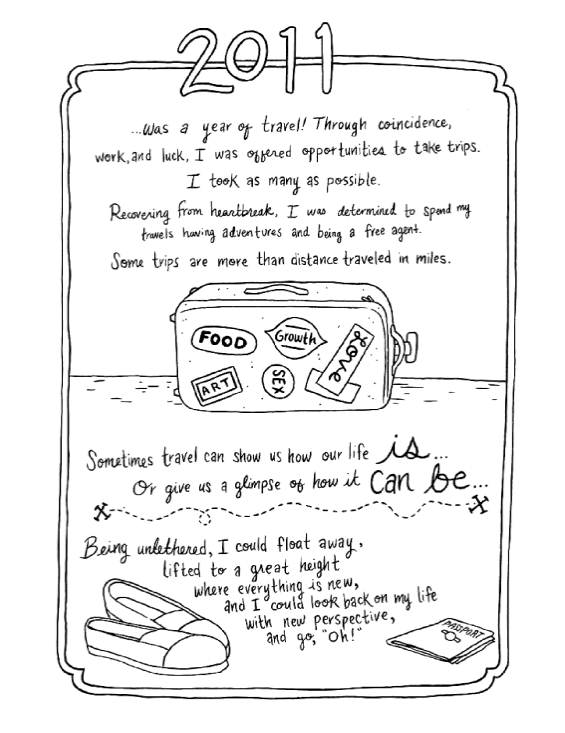 2011
...was a year of travel! Through coincidence,
work, and luck, I was offered opportunities to take trips.
I took as many as possible.
Recovering from heartbreak, I was determined to spend my
travels having adventures and being a free agent.
Some trips are more than distance traveled in miles.
FOOD
Growth
Love
ART
SEX
Sometimes travel can show us how our life is...
Or give us a glimpse of how it can be...
Being untethered, I could float away,
lifted to a great height
where everything is new,
and I could look back on my life
with new perspective,
and go, "Oh!"
PASSPORT